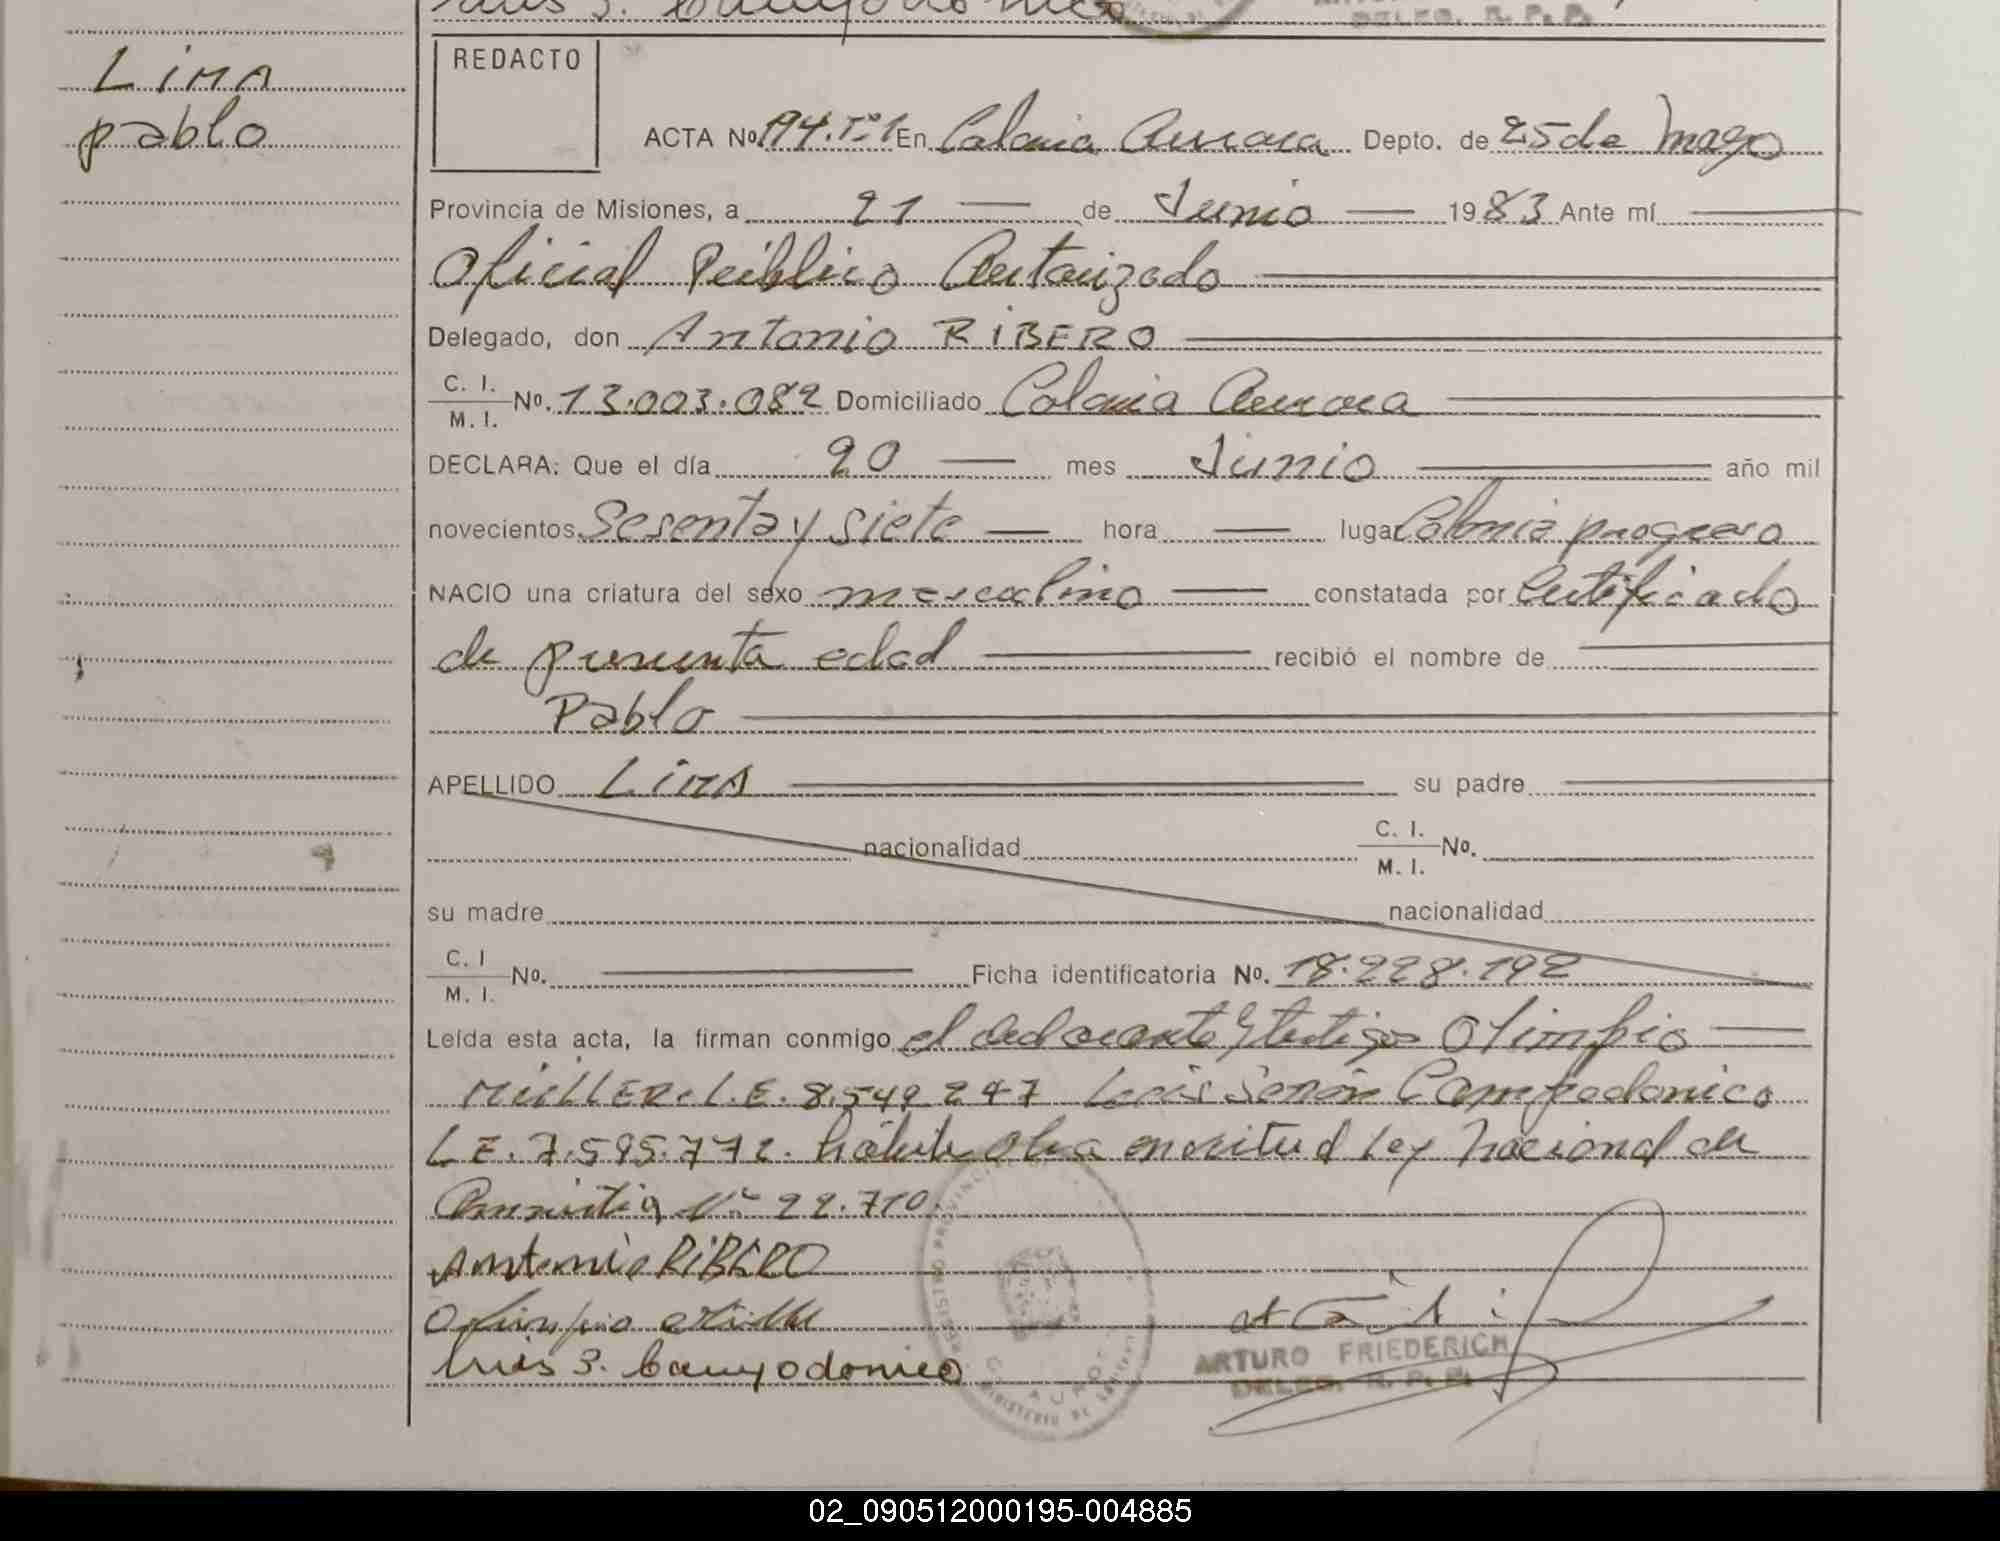 Luis S. Campodonico
DELEG. R. P. P.
LIMA
pablo
REDACTO
ACTA Nº 194. Tº1 En Colonia Aurora Depto. de 25 de Mayo
Provincia de Misiones, a 21 — de Junio — 1983 Ante mí —
Oficial Público Autorizado —
Delegado, don Antonio RIBERO —
C. I. / M. I. Nº. 13.003.082 Domiciliado Colonia Aurora —
DECLARA: Que el día 20 — mes Junio — año mil
novecientos Sesenta y siete — hora — lugar Colonia progreso
NACIO una criatura del sexo masculino — constatada por Certificado
de presunta edad — recibió el nombre de —
Pablo —
APELLIDO LIMA — su padre —
nacionalidad C. I. / M. I. Nº.
su madre nacionalidad
C. I / M. I. Nº. — Ficha identificatoria Nº. 18.228.192
Leída esta acta, la firman conmigo el declarante y testigos Olimpio —
MÜLLER. L.E. 8.549.247 Luis Serón Campodonico
L.E. 7.595.772. trámite obra en virtud Ley Nacional de
Amnistia Nº 22.710.
Antonio RIBERO
Olimpio Müller
Luis S. Campodonico
ARTURO FRIEDERICH
DELEG. R. P. P.
02_090512000195-004885